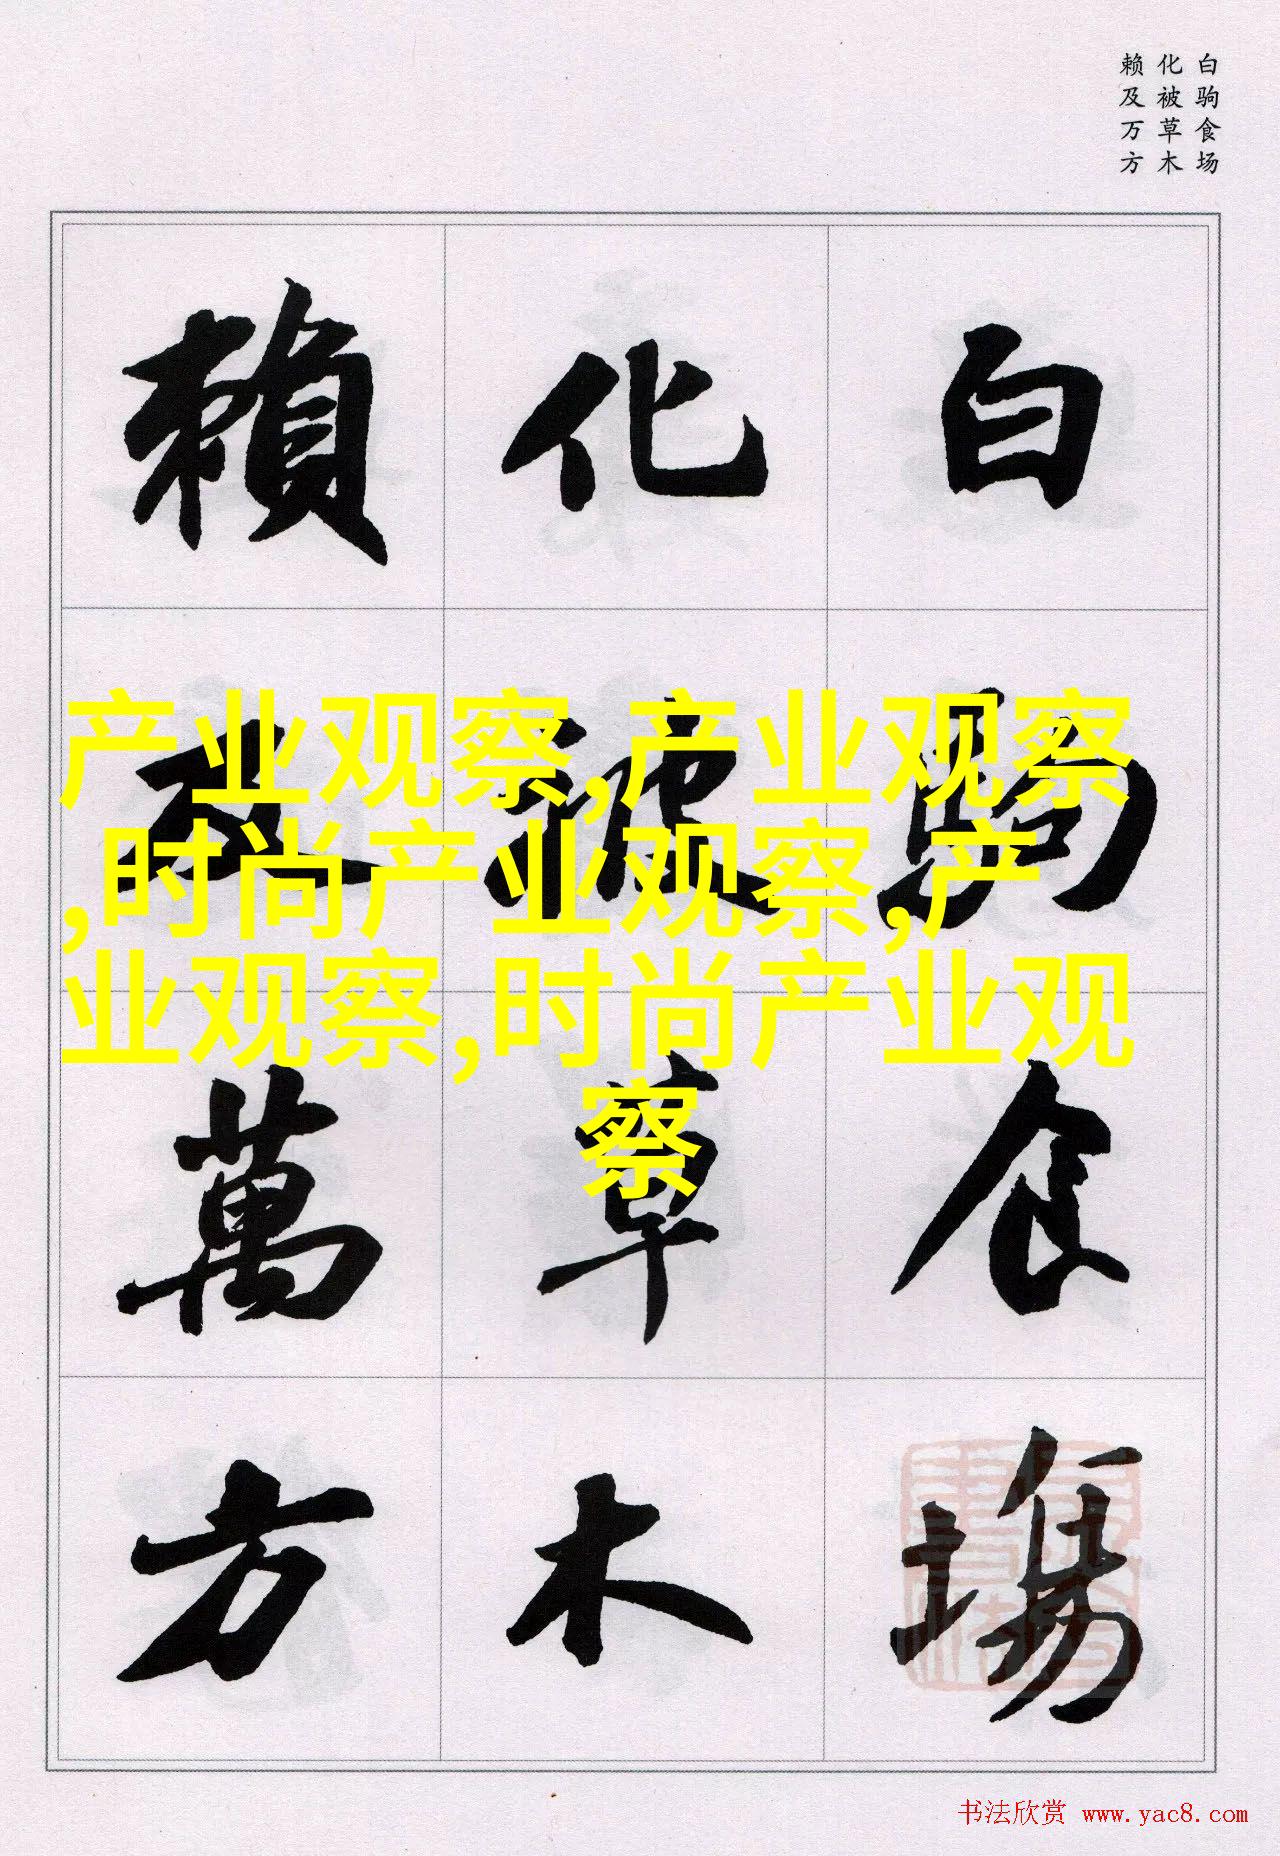 白驹食场
化被草木
赖及万方
白駒食場
化被草木
賴及萬方
产业观察,产业观察
,时尚产业观察,产
业观察,时尚产业观
察
书法欣赏 www.yac8.com